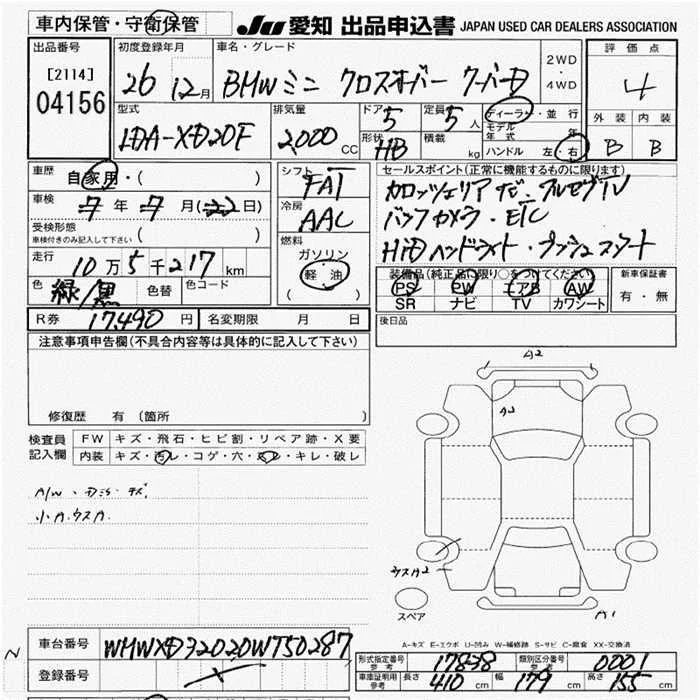 車内保管・守衛保管
JU 愛知 出品申込書 JAPAN USED CAR DEALERS ASSOCIATION
出品番号
[2114]
04156
初度登録年月
26 12月
車名・グレード
BMWミニ クロスオーバー クーパーD
2WD
・
4WD
評価点
4
外装 内装
B B
型式
LDA-XD20F
排気量
2,000 CC
ドア 5
形状 HB
定員 5人
積載 kg
ディーラー・並行
モデル年式 年
ハンドル 左・右
車歴 自家用・( )
車検 7年7月(22日)
受検形態
車検付きのみ記入して下さい ( )
走行 10万5千217km
色 緑/黒 色替 色コード
R券 17,490円 名変期限 月 日
シフト FAT
冷房 AAC
燃料
ガソリン
軽油
( )
セールスポイント(正常に機能するものに限ります)
カロッツェリアナビ・フルセグTV
バックカメラ・ETC
HIDヘッドライト・プッシュスタート
装備品(純正品に限り○をつけてください)
PS PW エアB AW
SR ナビ TV カワシート
新車保証書
有・無
後日品
注意事項申告欄(不具合内容等は具体的に記入して下さい)
修復歴 有(箇所
検査員記入欄
FW キズ・飛石・ヒビ割・リペア跡・X要
内装 キズ・汚レ・コゲ・穴・スレ・キレ・破レ
A/W・
小A.ウスA.
A2
A2
ウスA2
スペア
A1
A-キズ E-エクボ U-凹み W-補修跡 S-サビ C-腐食 XX-交換済
N
車台番号 WMWXD32020WT50287
登録番号
形式指定番号参考 17838 類別区分番号参考 0001
車庫証明用参考 長さ 410cm 幅 179cm 高さ 155cm